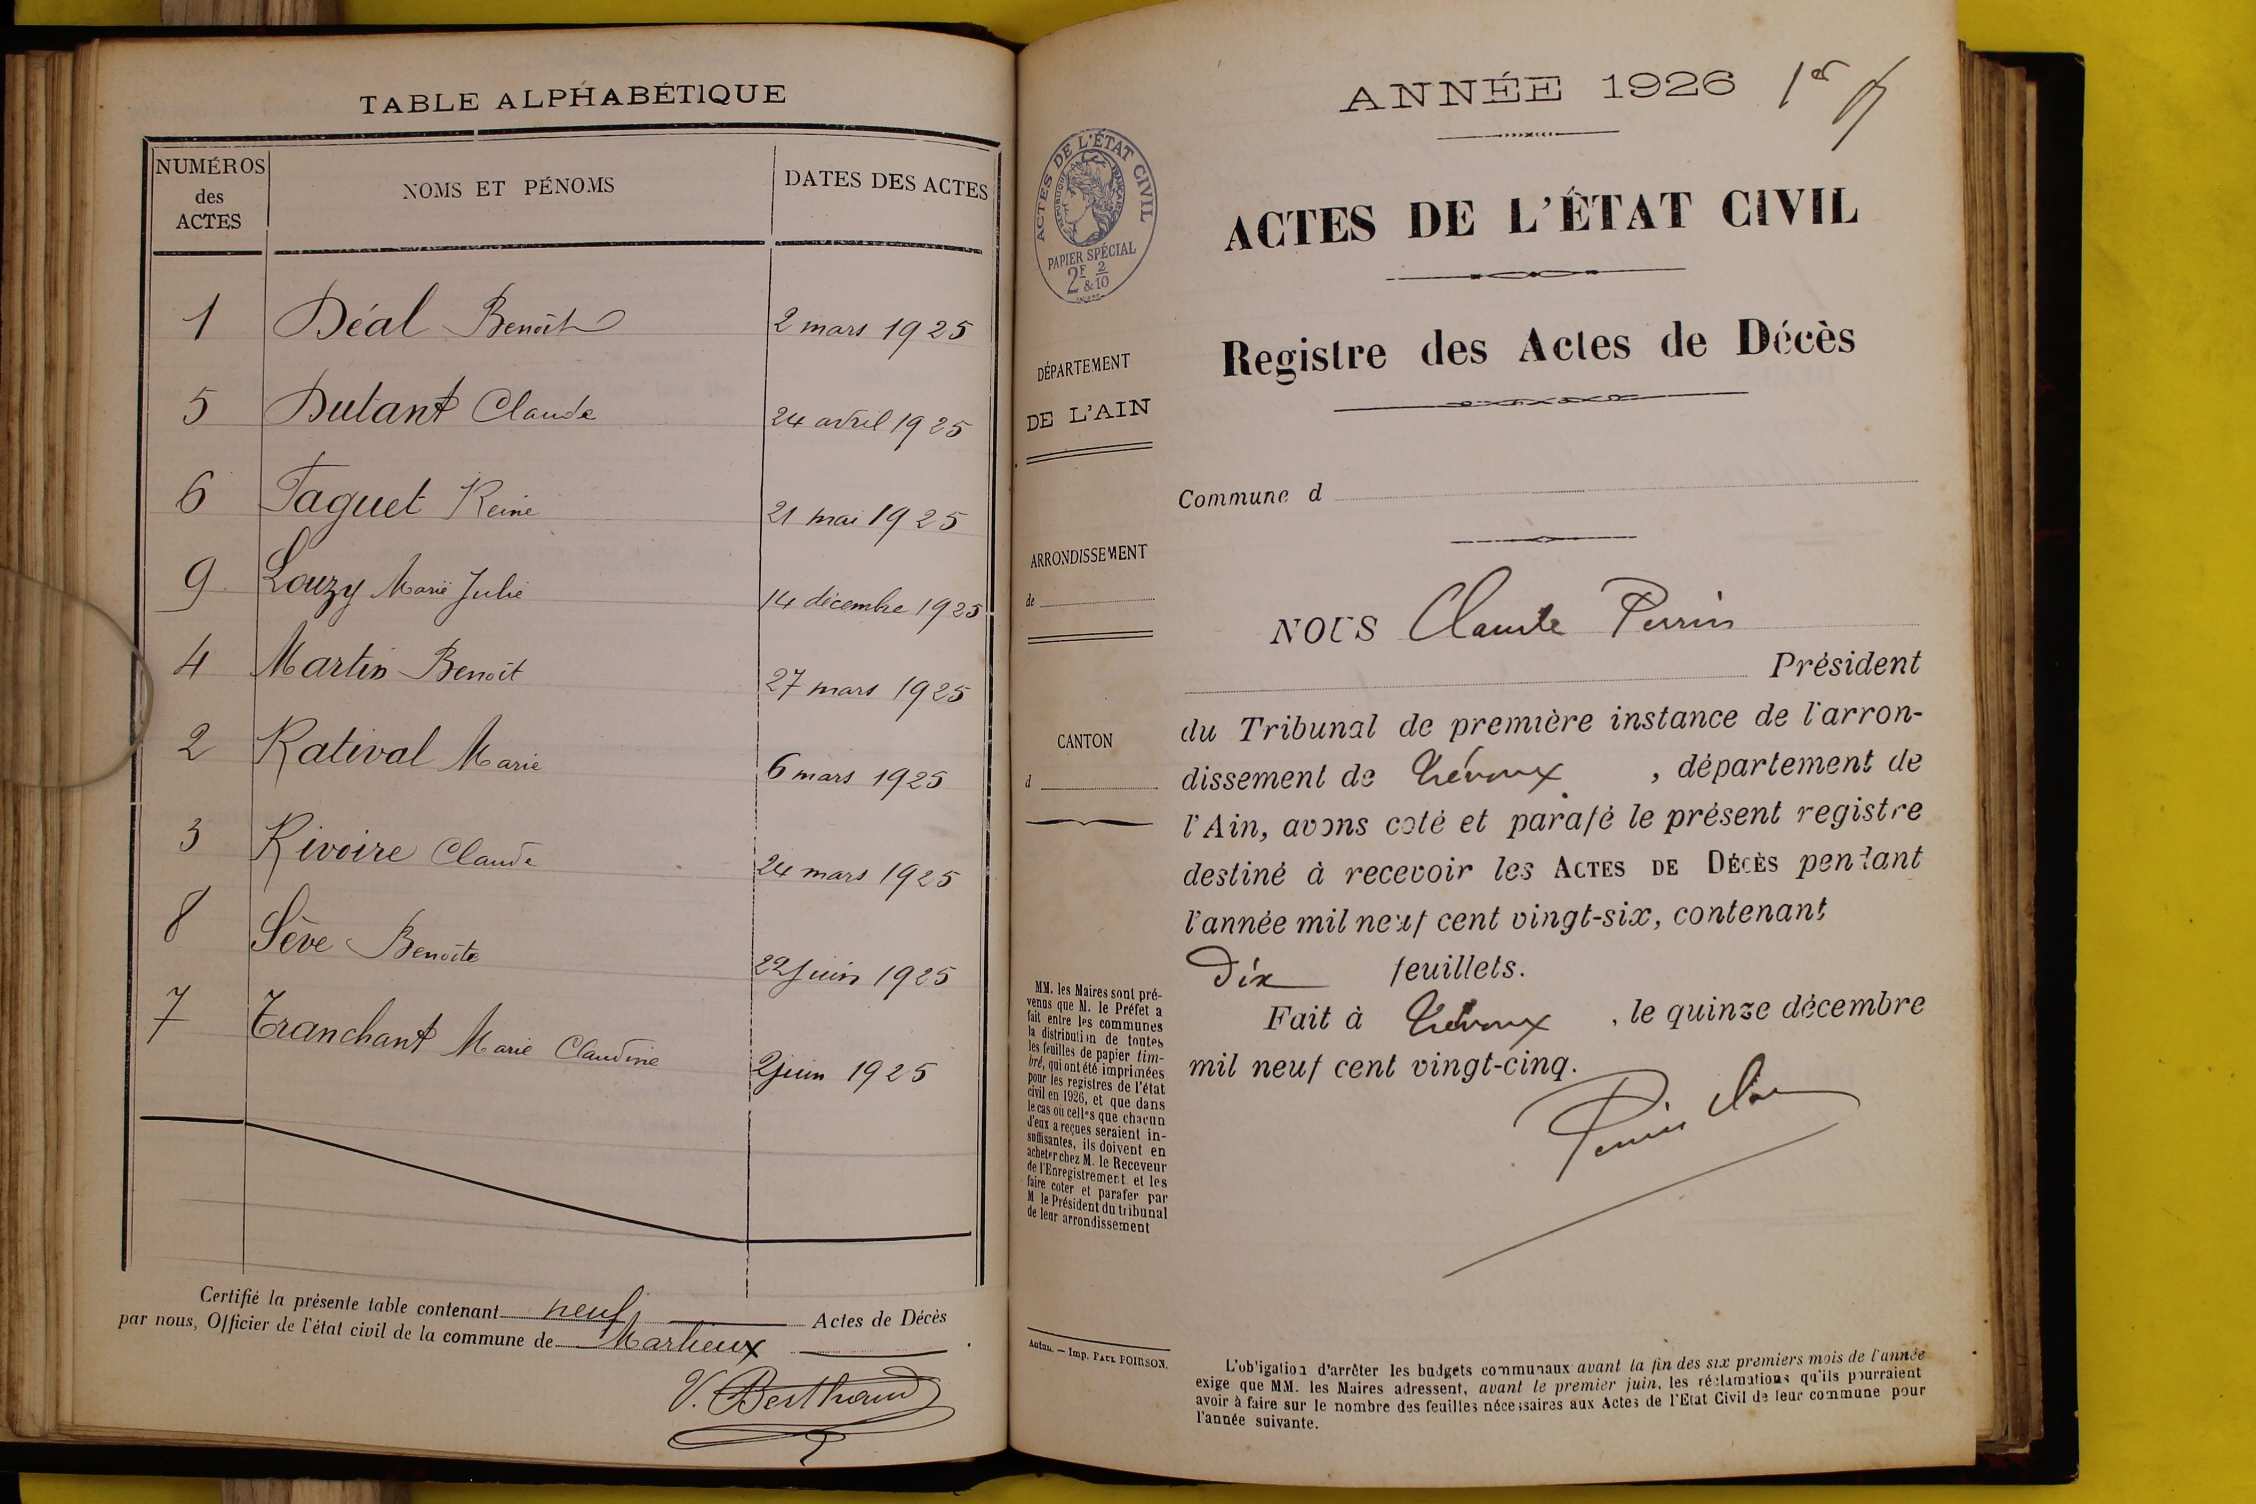 TABLE ALPHABÉTIQUE
NUMÉROS
des
ACTES
NOMS ET PÉNOMS
DATES DES ACTES
1 Déal Benoît 2 mars 1925
5 Dutant Claude 24 avril 1925
6 Taguet Reine 21 mai 1925
9 Louzy Marie Julie 14 décembre 1925
4 Martin Benoît 27 mars 1925
2 Rativat Marie 6 mars 1925
3 Rivoire Claude 24 mars 1925
8 Sève Benoîte 22 juin 1925
7 Tranchant Marie Claudine 2 juin 1925
Certifié la présente table contenant neuf Actes de Décès
par nous, Officier de l'état civil de la commune de Marlieux
V. Berthaud
ANNÉE 1926 1er
ACTES DE L'ÉTAT CIVIL
RÉPUBLIQUE FRANÇAISE
PAPIER SPÉCIAL
2F & 2/10
ACTES DE L'ÉTAT CIVIL
Registre des Actes de Décès
DÉPARTEMENT
DE L'AIN
Commune d
ARRONDISSEMENT
de
CANTON
d
NOUS Claude Perrin
Président
du Tribunal de première instance de l'arron-
dissement de Trévoux, département de
l'Ain, avons coté et parafé le présent registre
destiné à recevoir les ACTES DE DÉCÈS pendant
l'année mil neuf cent vingt-six, contenant
Dix feuillets.
Fait à Trévoux, le quinze décembre
mil neuf cent vingt-cinq.
MM. les Maires sont pré-
venus que M. le Préfet a
fait entre les communes
la distribution de toutes
les feuilles de papier tim-
bré, qui ont été imprimées
pour les registres de l'état
civil en 1926, et que dans
le cas où celles que chacun
d'eux a reçues seraient in-
suffisantes, ils doivent en
acheter chez M. le Receveur
de l'Enregistrement et les
faire coter et parafer par
M le Président du tribunal
de leur arrondissement
Autun. — Imp. PAUL POIRSON.
L'obligation d'arrêter les budgets communaux avant la fin des six premiers mois de l'année
exige que MM. les Maires adressent, avant le premier juin, les réclamations qu'ils pourraient
avoir à faire sur le nombre des feuilles nécessaires aux Actes de l'Etat Civil de leur commune pour
l'année suivante.